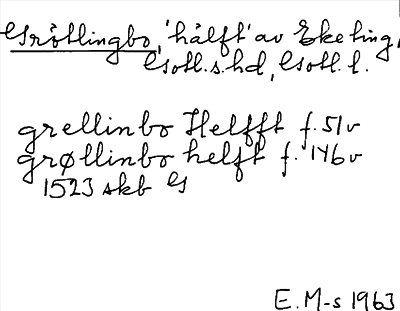 Grötlingbo, 'hälft' av Eke ting,
Gotl.s.hd, Gotl. l.
grellinbo Helfft f. 51v
grøllinbo helft f. 146v
1523 skb G
E. M-s 1963